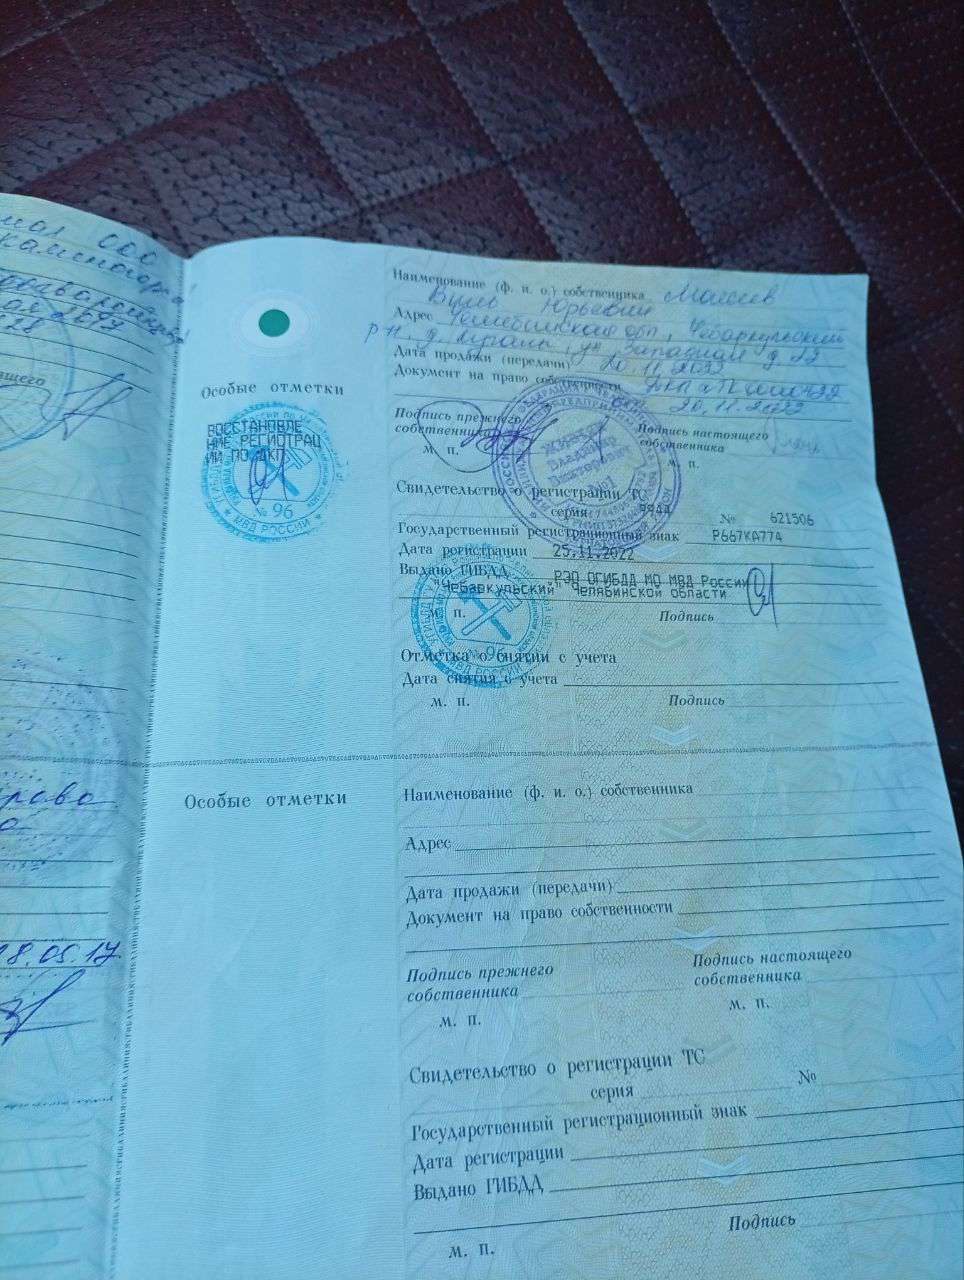 Особые отметки
ВОССТАНОВЛЕ
НИЕ РЕГИСТРАЦ
ИИ ПО ДКП
№ 96
МВД РОССИИ
Наименование (ф. и. о.) собственника Моисеев
Юрьевич
Адрес Челябинская обл., Чебаркульский
р-н, д. ул. Западная д. 22
Дата продажи (передачи) 20.11.2022
Документ на право собственности ДКП
20.11.2022
Подпись прежнего
собственника
м. п.
Подпись настоящего
собственника
м. п.
Владимир
Викторович
№1
Свидетельство о регистрации ТС
серия 9944 № 621506
Государственный регистрационный знак Р667КА774
Дата регистрации 25.11.2022
Выдано ГИБДД РЭО ОГИБДД МО МВД России
"Чебаркульский" Челябинской области
м. п.
Подпись
№ 96
МВД РОССИИ
Отметка о снятии с учета
Дата снятия с учета
м. п.
Подпись
Особые отметки
Наименование (ф. и. о.) собственника
Адрес
Дата продажи (передачи)
Документ на право собственности
Подпись прежнего
собственника
м. п.
Подпись настоящего
собственника
м. п.
Свидетельство о регистрации ТС
серия №
Государственный регистрационный знак
Дата регистрации
Выдано ГИБДД
Подпись
м. п.
8.05.17